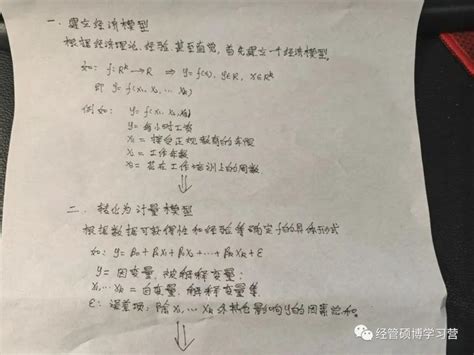 一、建立经济模型
根据经济理论、经验、甚至直觉,首先建立一个经济模型,
如: f: Rᵏ→R ⇒ y=f(x), y∈R, x∈Rᵏ
即 y=f(x₁, x₂, ... xₖ)
例如: y=f(x₁, x₂, x₃)
y=每小时工资
x₁=接受正规教育的年限
x₂=工作年数
x₃=花在工作培训上的周数
⇓
二、转化为计量模型
根据数据可获得性和经验等确定f的具体形式
如: y=β₀+β₁x₁+β₂x₂+...+βₖxₖ+ε
y=因变量,被解释变量;
x₁, ... xₖ=自变量,解释变量等.
ε:误差项,除x₁, ... xₖ外其他影响y的因素总和.
⇓
经管硕博学习营